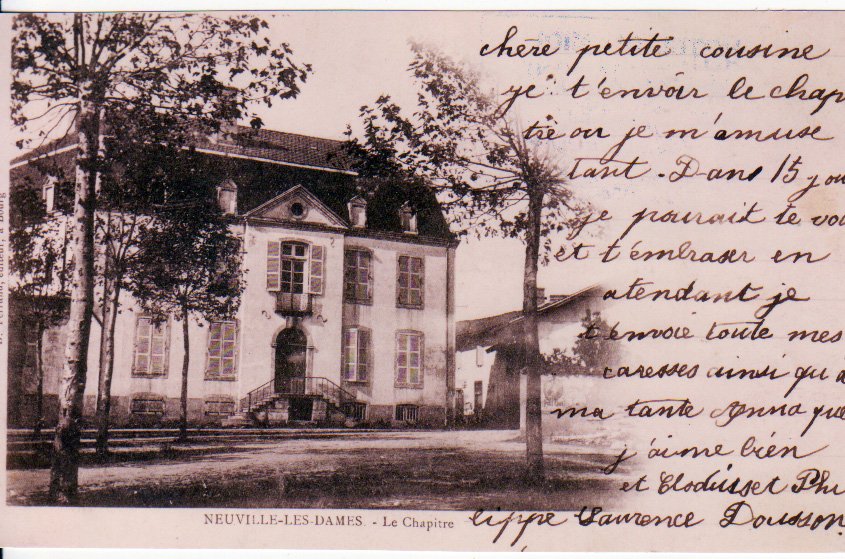 chère petite cousine
je t'envoir le chap
tre ou je m'amuse
tant - Dans 15 jou
je pourait te vo
et t'embraser en
atendant je
t'envoie toute mes
caresses ainsi qu'a
ma tante Anna que
j'aime bien
et Clodusset Phi
lippe Laurence Dousson
NEUVILLE-LES-DAMES. - Le Chapitre
éditeur, à Bourg